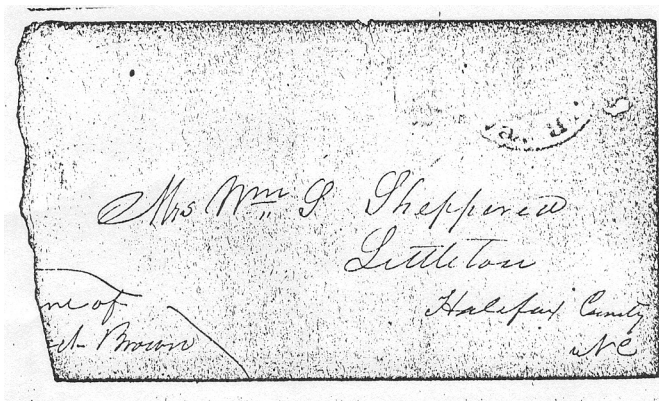 Mrs Wm S Sheppered
Littleton
Halifax County
NC
of
Brown